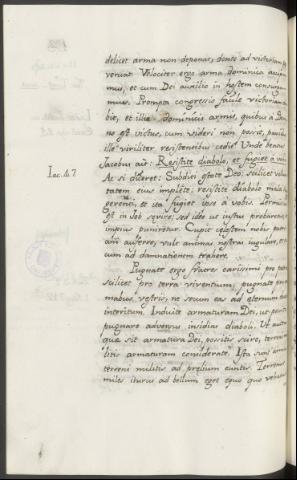 delicet arma non deponat, donec ad victoriam per
venat. Velociter ergo arma Dominica accipia
mus, et cum Dei auxilio in hostem consurga
mus. Prompta congressio facile victoriam da
bit, et illis dominicis armis, quibus a Domi
no est victus, cum videri non possit, punitur
ille viriliter resistentibus cedit. Unde beatus
Jacobus ait: Resistite diabolo, et fugiet a vobis.
Iac. 4. 7
Ac si diceret: Subditi estote Deo, scilicet volun
tatem eius implete: resistite diabolo mala sug
gerenti, et ita fugiet ipse a vobis.
est in Job sevire, sed ideo ut iustus probaretur, et
impius puniretur. Cupit celestem nobis patri
am auferre, vult animas nostras iugulare, et se
cum ad damnationem trahere.
Pugnate ergo fratres carissimi pro patria
scilicet pro terra viventium, pugnate pro ani
mabus vestris, ne secum eas ad eternum ducat
interitum. Induite armaturam Dei, ut possitis
pugnare adversus insidias diaboli. Ut autem
que sit armatura Dei, possitis scire, terrena mi
litis armaturam considerate. Ista sunt arma
terreni militis ad prelium euntis. Terrenus
miles iturus ad bellum eget equo quo vehatur